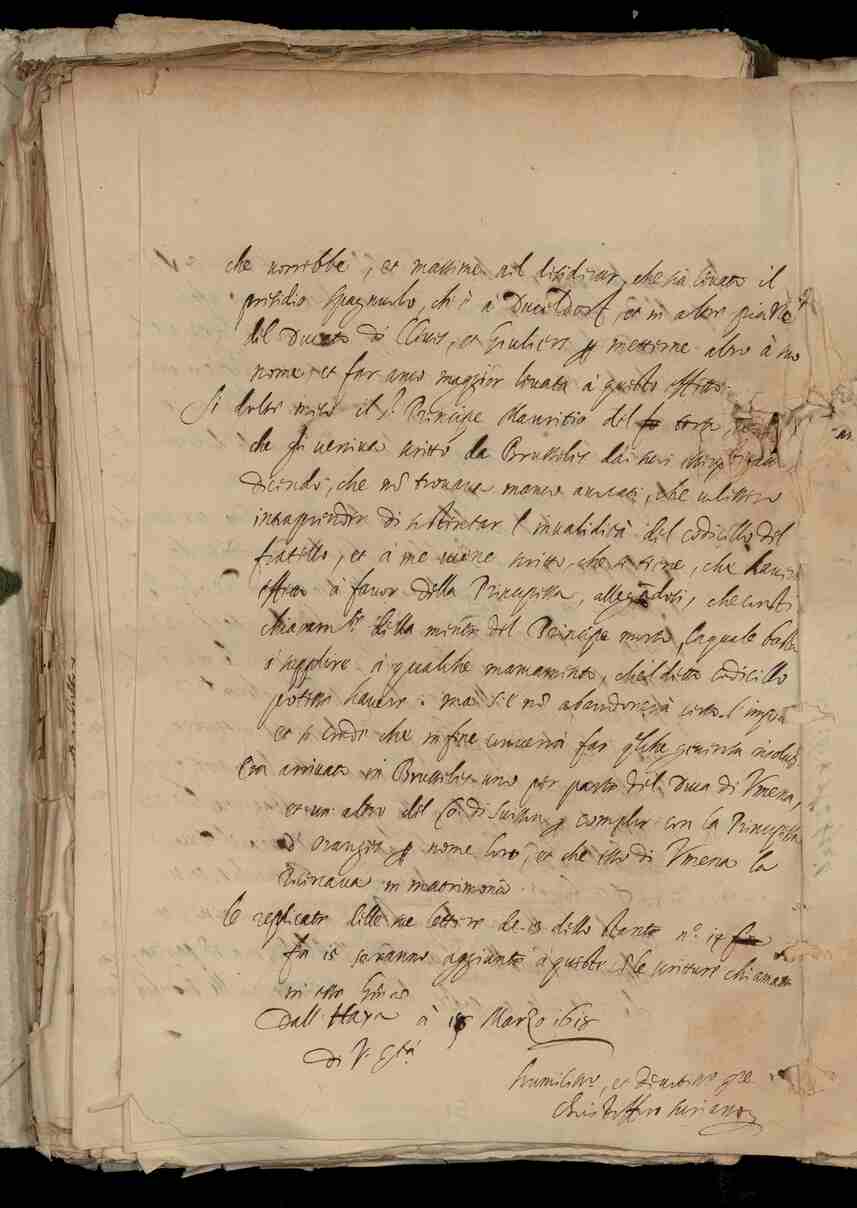 che vorrebbe, et massime nel desiderar, che sia levato il
presidio spagnuolo, ch'è à Duceldorf, et in altre piazze
del Ducato di Cleves, et Giuliers p metterne altro à suo
nome, et far anco maggior levata à questo effetto.
Si dolse meco il s.r Principe Mauritio del torto,
che gli veniva scritto da Brusselles dai suoi
dicendo, che nõ trovava manco avocati, che volessero
intraprender di sostentar l'invalidità del codicillo del
fratello, et à me viene scritto, che si tiene, che
à favor della Principessa, allegãdosi, che consti
chiaram.te della mente del Principe morto, la quale basta
à supplire à qualche mancamento, che'l detto codicillo
potesse havere: ma S.E. nõ abandonerà
et si crede che in fine converrà far q̃lche
Era arrivato in Brusselles uno per parte del Duca di Umena,
et un altro del Co: di p complir con la Principessa
d'Oranges p nome loro, et che esso di Umena la
ricercava in matrimonio.
Le replicate delle mie lettere de 13 dello stante n.o 14
fin 15 saranno aggiunte à queste cõ le scritture chiamate
in esse
Dall'Haya à Marzo 1618
Di V. Ser.tà
humiliss.o, et devotiss.o ser.e
Christofforo Suriano